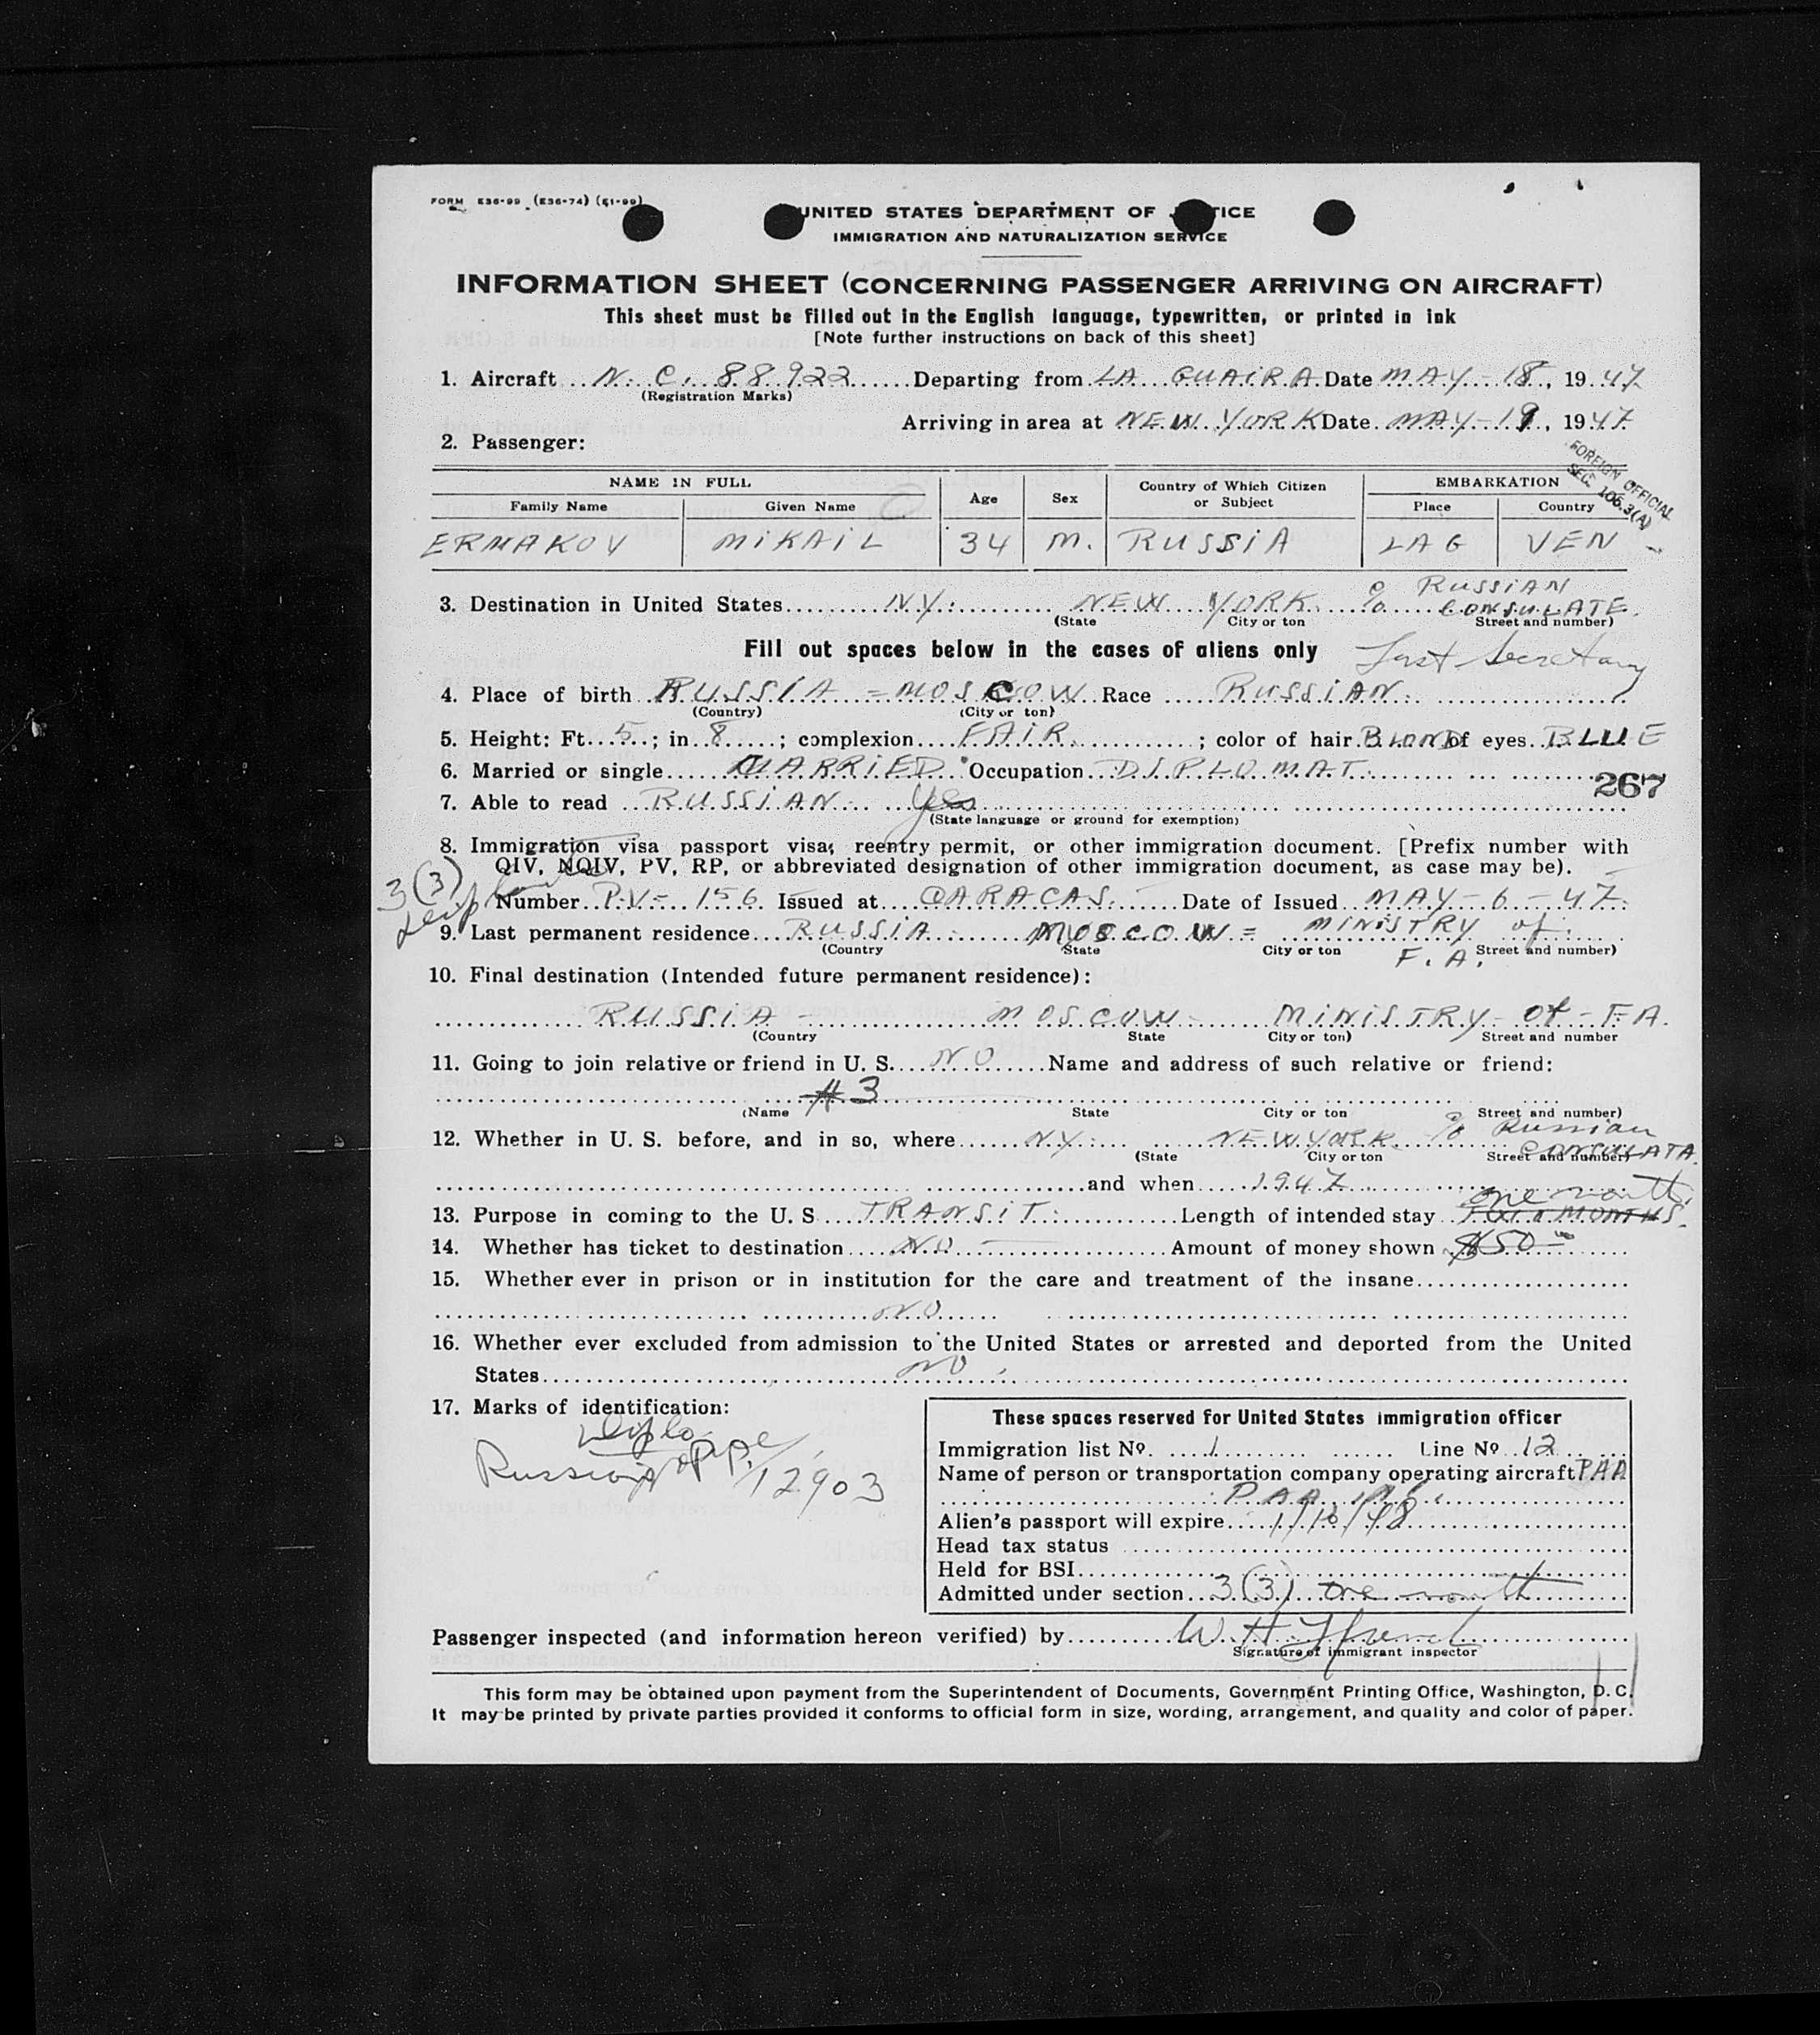 FORM E36-99 (E36-74) (E1-99)
UNITED STATES DEPARTMENT OF JUSTICE
IMMIGRATION AND NATURALIZATION SERVICE
INFORMATION SHEET (CONCERNING PASSENGER ARRIVING ON AIRCRAFT)
This sheet must be filled out in the English language, typewritten, or printed in ink
[Note further instructions on back of this sheet]
1. Aircraft N. C. 88922 Departing from LA GUAIRA Date MAY-18, 1947
(Registration Marks)
Arriving in area at NEW YORK Date MAY-19, 1947
2. Passenger:
FOREIGN OFFICIAL
SEC. 106.3(A)
NAME IN FULL Age Sex Country of Which Citizen or Subject EMBARKATION
Family Name Given Name Place Country
ERMAKOV MIKAIL 34 M. RUSSIA LAG VEN
3. Destination in United States NY. NEW YORK c/o RUSSIAN CONSULATE.
(State City or ton Street and number)
Fill out spaces below in the cases of aliens only
Secretary
4. Place of birth RUSSIA = MOSCOW Race RUSSIAN.
(Country) (City or ton)
5. Height: Ft. 5; in 8; complexion FAIR; color of hair BLOND of eyes BLUE
6. Married or single MARRIED Occupation DIPLOMAT.
267
7. Able to read RUSSIAN. Yes
(State language or ground for exemption)
8. Immigration visa passport visa, reentry permit, or other immigration document. [Prefix number with
QIV, NQIV, PV, RP, or abbreviated designation of other immigration document, as case may be).
3(3)
Number PV= 156 Issued at CARACAS. Date of Issued MAY-6-47.
9. Last permanent residence RUSSIA. MOSCOW = MINISTRY of F. A.
(Country State City or ton Street and number)
10. Final destination (Intended future permanent residence):
RUSSIA - MOSCOW - MINISTRY - Of - FA.
(Country State City or ton) Street and number
11. Going to join relative or friend in U. S. NO Name and address of such relative or friend:
#3
(Name State City or ton Street and number)
12. Whether in U. S. before, and in so, where NY. NEW YORK c/o Russian CONSULATA.
(State City or ton Street and number)
and when 1947
one month
13. Purpose in coming to the U. S TRANSIT. Length of intended stay MONTHS.
14. Whether has ticket to destination NO Amount of money shown $50
15. Whether ever in prison or in institution for the care and treatment of the insane
NO
16. Whether ever excluded from admission to the United States or arrested and deported from the United
States NO
17. Marks of identification:
Diplo
Russian PP 12903
These spaces reserved for United States immigration officer
Immigration list No. 1 Line No 12
Name of person or transportation company operating aircraft PAA
PAA
Alien's passport will expire 1/18/48
Head tax status
Held for BSI
Admitted under section 3(3) one month
Passenger inspected (and information hereon verified) by W H
Signature of immigrant inspector
This form may be obtained upon payment from the Superintendent of Documents, Government Printing Office, Washington, D. C.
It may be printed by private parties provided it conforms to official form in size, wording, arrangement, and quality and color of paper.